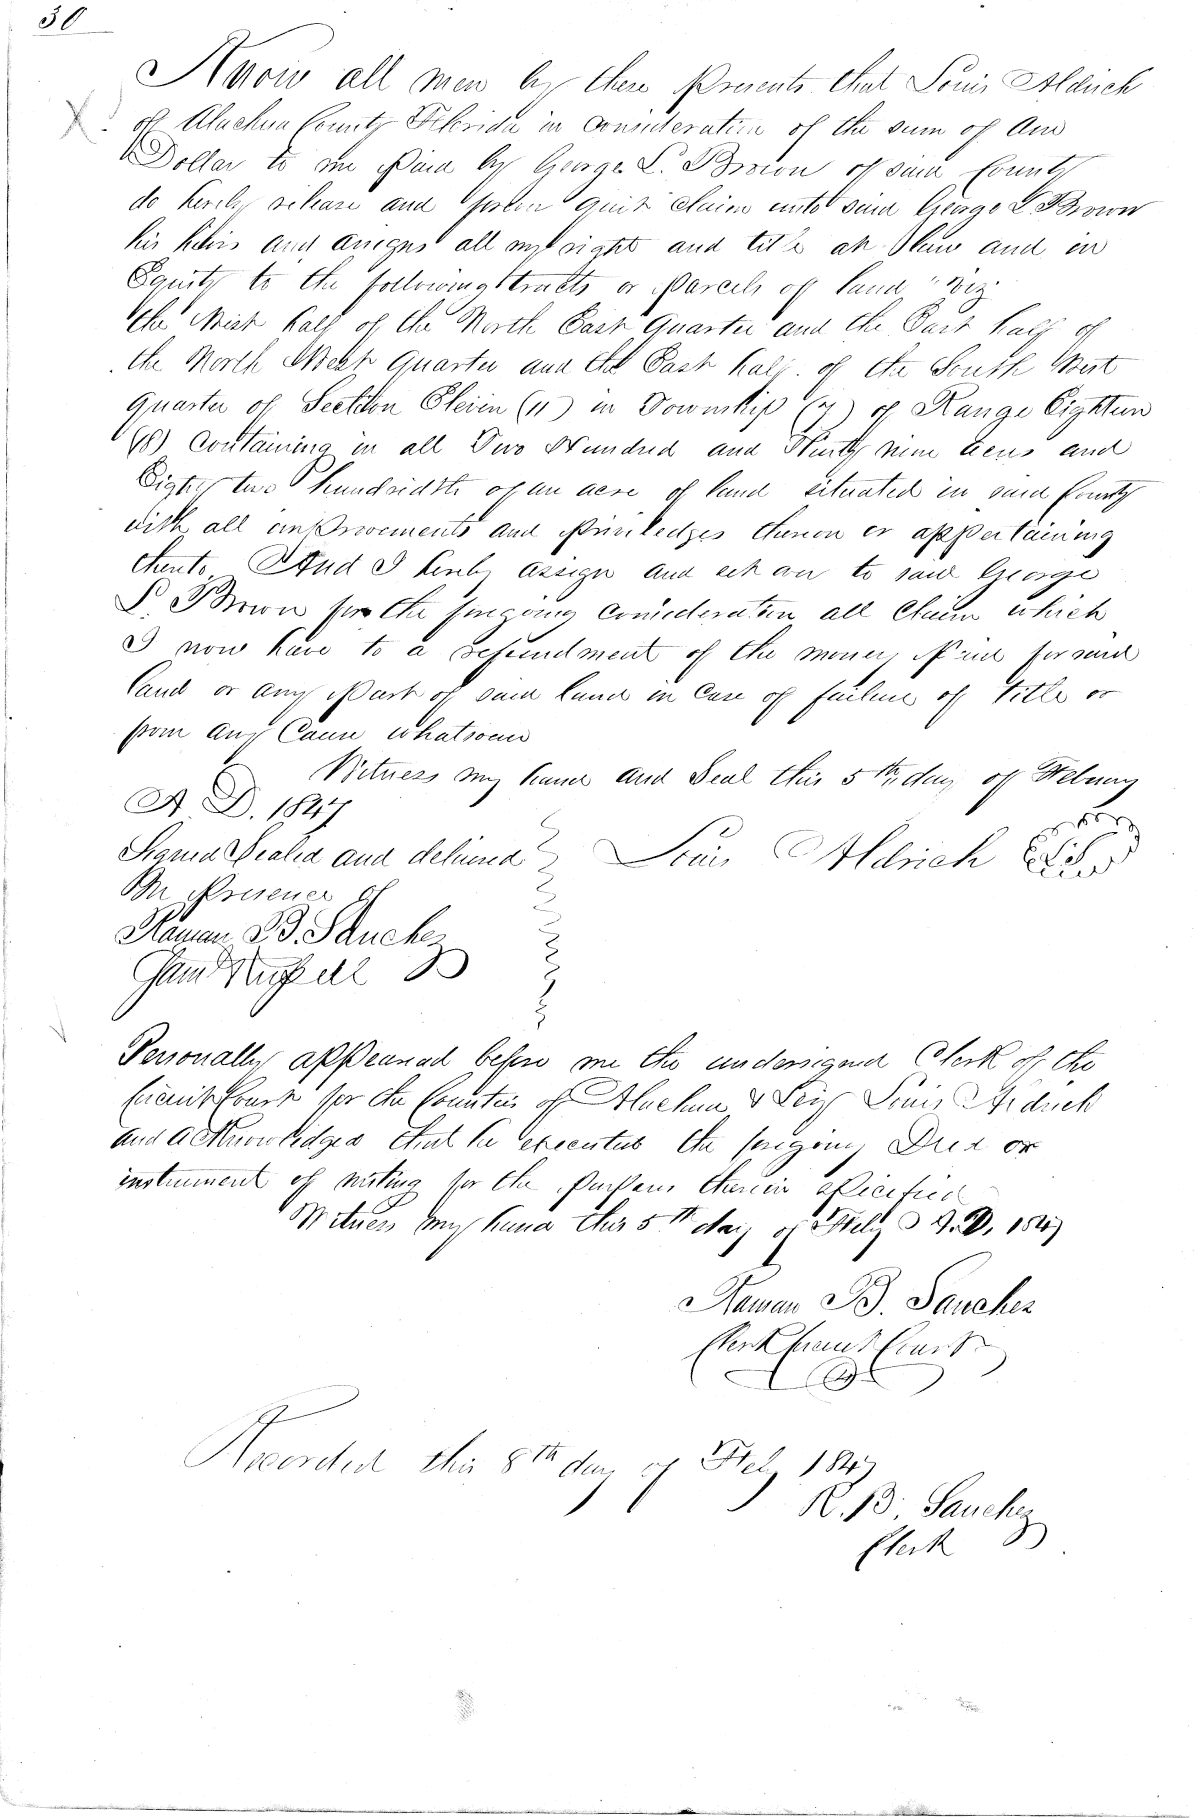 30
Know all men by these Presents that Louis Aldrich
of Alachua County Florida in consideration of the sum of One
Dollar to me Paid by George L. Brown of said County
do hereby release and forever quit claim unto said George L. Brown
his heirs and assigns all my right and title at Law and in
Equity to the following tracts or Parcels of land "Viz
the West half of the North East Quarter and the East half of
the North West Quarter and the East half of the South West
Quarter of Section Eleven (11) in Township (7) of Range Eighteen
(18) Containing in all Two Hundred and Ninty nine acres and
Eighty two hundredths of an acre of land situated in said County
with all improvements and Priviledges thereon or appertaining
thereto. And I hereby assign and set over to said George
L. Brown for the foregoing consideration all Claim which
I now have to a refundment of the money Paid for said
land or any Part of said land in Case of failure of title or
from any Cause whatsoever
Witness my hand and Seal this 5th day of Febuary
A. D. 1847
Signed Sealed and delivered Louis Aldrich
In Presence of
Raman B. Sanchez
Sam Russell
Personally appeared before me the undersigned Clerk of the
Circuit Court for the Counties of Alachua & Levy Louis Aldrich
and acknowledged that he executed the foregoing Deed or
instrument of writing for the Purposes therein specified
Witness my hand this 5th day of Feby A.D. 1847
Raman B. Sanchez
Clerk Circuit Court
Recorded this 8th day of Feby 1847
R. B. Sanchez
Clerk